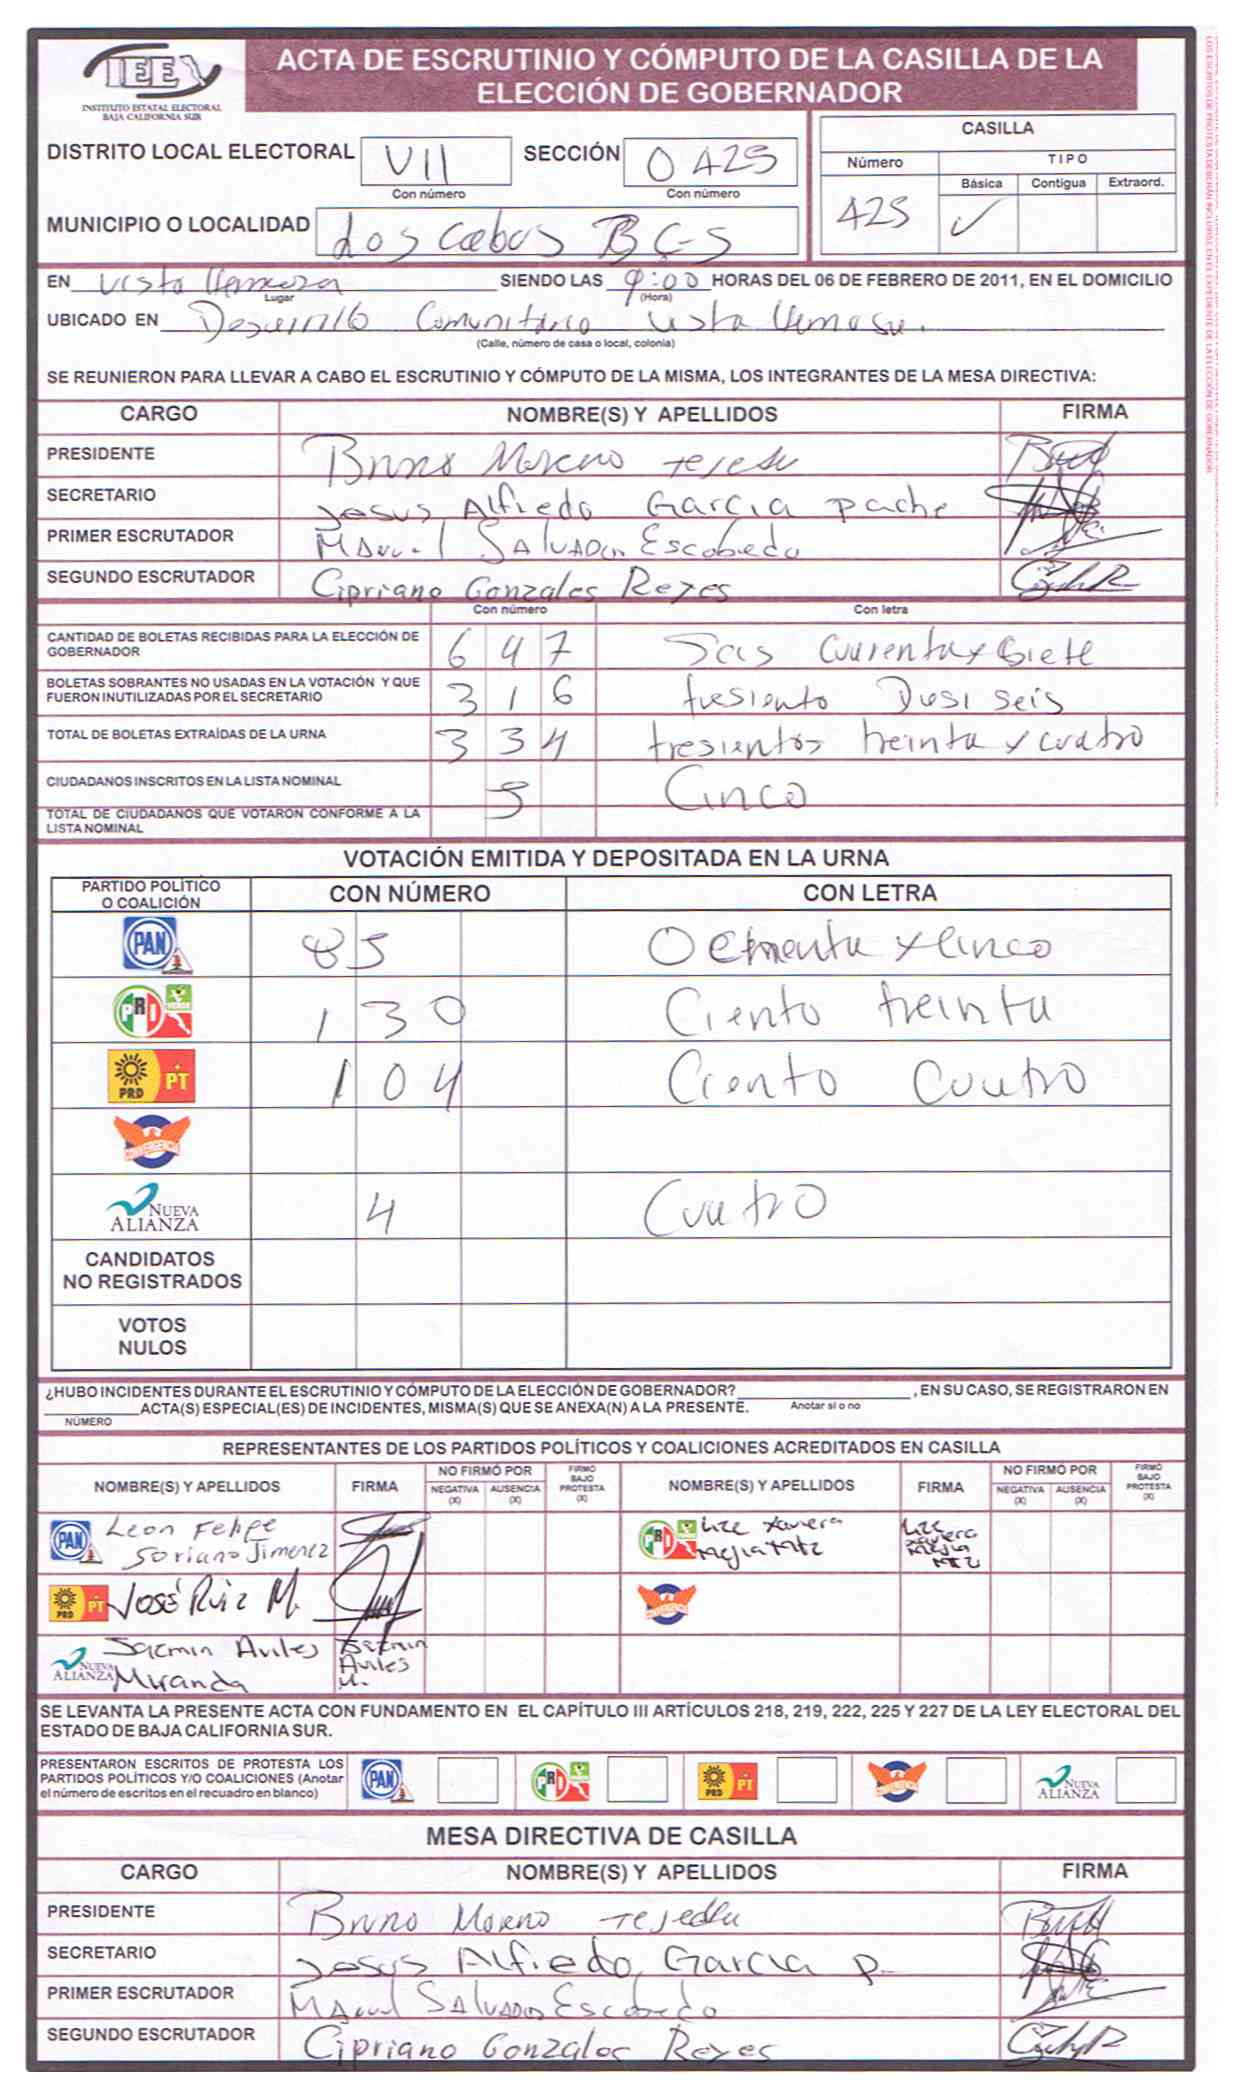 IEE
INSTITUTO ESTATAL ELECTORAL
BAJA CALIFORNIA SUR
ACTA DE ESCRUTINIO Y CÓMPUTO DE LA CASILLA DE LA
ELECCIÓN DE GOBERNADOR
DISTRITO LOCAL ELECTORAL VII SECCIÓN 0425
Con número Con número
MUNICIPIO O LOCALIDAD Los Cabos BCS
CASILLA
Número TIPO
Básica Contigua Extraord.
425 ✓
EN vista Hermosa SIENDO LAS 9:00 HORAS DEL 06 DE FEBRERO DE 2011, EN EL DOMICILIO
Lugar (Hora)
UBICADO EN Desarrollo Comunitario vista Hermosa.
(Calle, número de casa o local, colonia)
SE REUNIERON PARA LLEVAR A CABO EL ESCRUTINIO Y CÓMPUTO DE LA MISMA, LOS INTEGRANTES DE LA MESA DIRECTIVA:
CARGO NOMBRE(S) Y APELLIDOS FIRMA
PRESIDENTE Bruno Moreno
SECRETARIO Jesus Alfredo Garcia pache
PRIMER ESCRUTADOR Manuel Salvador Escobedo
SEGUNDO ESCRUTADOR Cipriano Gonzales Reyes
Con número Con letra
CANTIDAD DE BOLETAS RECIBIDAS PARA LA ELECCIÓN DE
GOBERNADOR 647 Seis Cuarenta y Siete
BOLETAS SOBRANTES NO USADAS EN LA VOTACIÓN Y QUE
FUERON INUTILIZADAS POR EL SECRETARIO 316 tresiento Diesi seis
TOTAL DE BOLETAS EXTRAÍDAS DE LA URNA 334 tresientos treinta y cuatro
CIUDADANOS INSCRITOS EN LA LISTA NOMINAL 5 Cinco
TOTAL DE CIUDADANOS QUE VOTARON CONFORME A LA
LISTA NOMINAL
VOTACIÓN EMITIDA Y DEPOSITADA EN LA URNA
PARTIDO POLÍTICO
O COALICIÓN CON NÚMERO CON LETRA
PAN 85 Ochenta y cinco
PRI VERDE 130 Ciento treinta
PRD PT 104 Ciento Cuatro
CONVERGENCIA
NUEVA
ALIANZA 4 Cuatro
CANDIDATOS
NO REGISTRADOS
VOTOS
NULOS
¿HUBO INCIDENTES DURANTE EL ESCRUTINIO Y CÓMPUTO DE LA ELECCIÓN DE GOBERNADOR? , EN SU CASO, SE REGISTRARON EN
ACTA(S) ESPECIAL(ES) DE INCIDENTES, MISMA(S) QUE SE ANEXA(N) A LA PRESENTE. Anotar sí o no
NÚMERO
REPRESENTANTES DE LOS PARTIDOS POLÍTICOS Y COALICIONES ACREDITADOS EN CASILLA
NOMBRE(S) Y APELLIDOS FIRMA NO FIRMÓ POR NEGATIVA (X) AUSENCIA (X) FIRMÓ BAJO PROTESTA (X) NOMBRE(S) Y APELLIDOS FIRMA NO FIRMÓ POR NEGATIVA (X) AUSENCIA (X) FIRMÓ BAJO PROTESTA (X)
PAN Leon Felipe
Soriano Jimenez
PRI Xaviera
Mejia Mtz
Xaviera
Mejia
Mtz
PRD PT José Ruiz M.
CONVERGENCIA
NUEVA
ALIANZA Jazmin Aviles
Miranda
Jazmin
Aviles
M.
SE LEVANTA LA PRESENTE ACTA CON FUNDAMENTO EN EL CAPÍTULO III ARTÍCULOS 218, 219, 222, 225 Y 227 DE LA LEY ELECTORAL DEL
ESTADO DE BAJA CALIFORNIA SUR.
PRESENTARON ESCRITOS DE PROTESTA LOS
PARTIDOS POLÍTICOS Y/O COALICIONES (Anotar
el número de escritos en el recuadro en blanco)
PAN PRI PRD PT CONVERGENCIA NUEVA ALIANZA
MESA DIRECTIVA DE CASILLA
CARGO NOMBRE(S) Y APELLIDOS FIRMA
PRESIDENTE Bruno Moreno
SECRETARIO Jesus Alfredo Garcia p.
PRIMER ESCRUTADOR Manuel Salvador Escobedo
SEGUNDO ESCRUTADOR Cipriano Gonzales Reyes